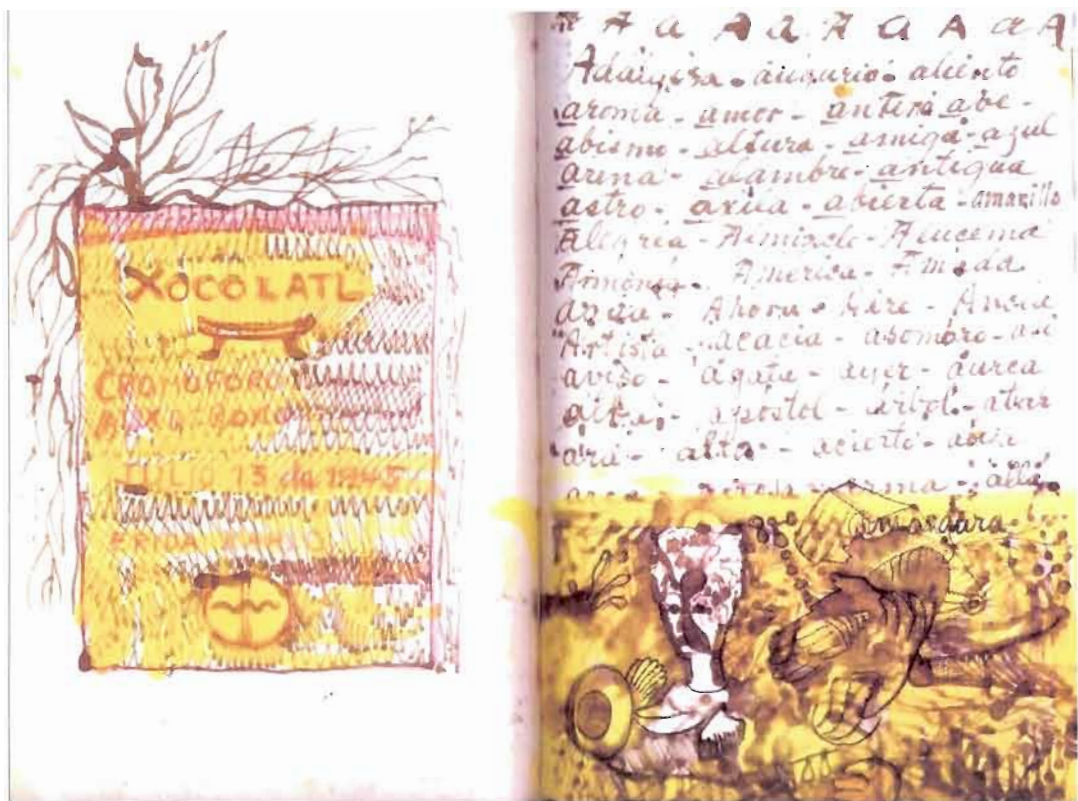 XOCOLATL
CROMOFORO
JULIO 13 de 1945
A a A a A a A a A
Adalgisa - augurio - aliento
aroma - amor - antena ave -
abismo - altura - amiga - azul
arena - alambre - antigua
astro - axila - abierta - amarillo
Alegria - Almizcle - Alucema
Armonia - America - Amada
Ahora - Aire - Ancla
Artista - acacia - asombro - asi
aviso - ágata - ayer - áurea
apostol - árbol - atar
ara - alta - acierto - abeja
arma - allá
amargura